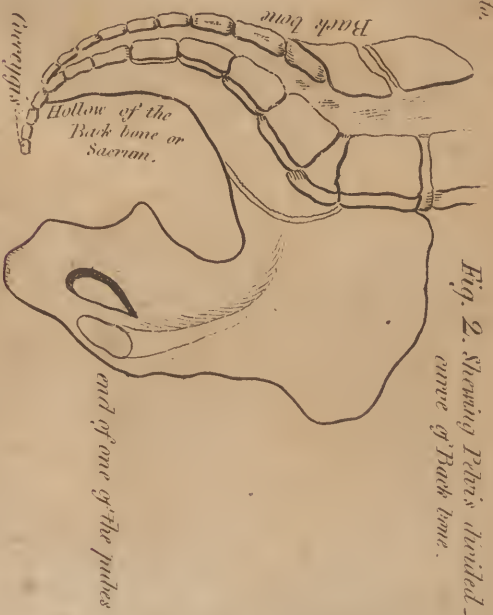 Fig. 2. Shewing Pelvis divided -
curve of Back bone.
Back bone
Coccygis
Hollow of the
Back bone or
Sacrum.
end of one of the pubes